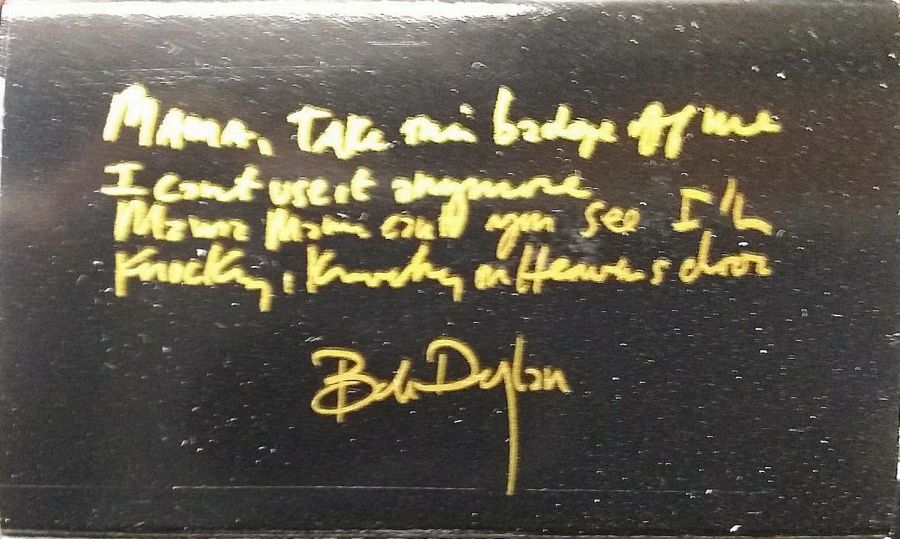 Mama, Take this badge off me
I cant use it anymore
Mama Mama can't you see I'm
Knockin, Knockin on Heavens door
Bob Dylan